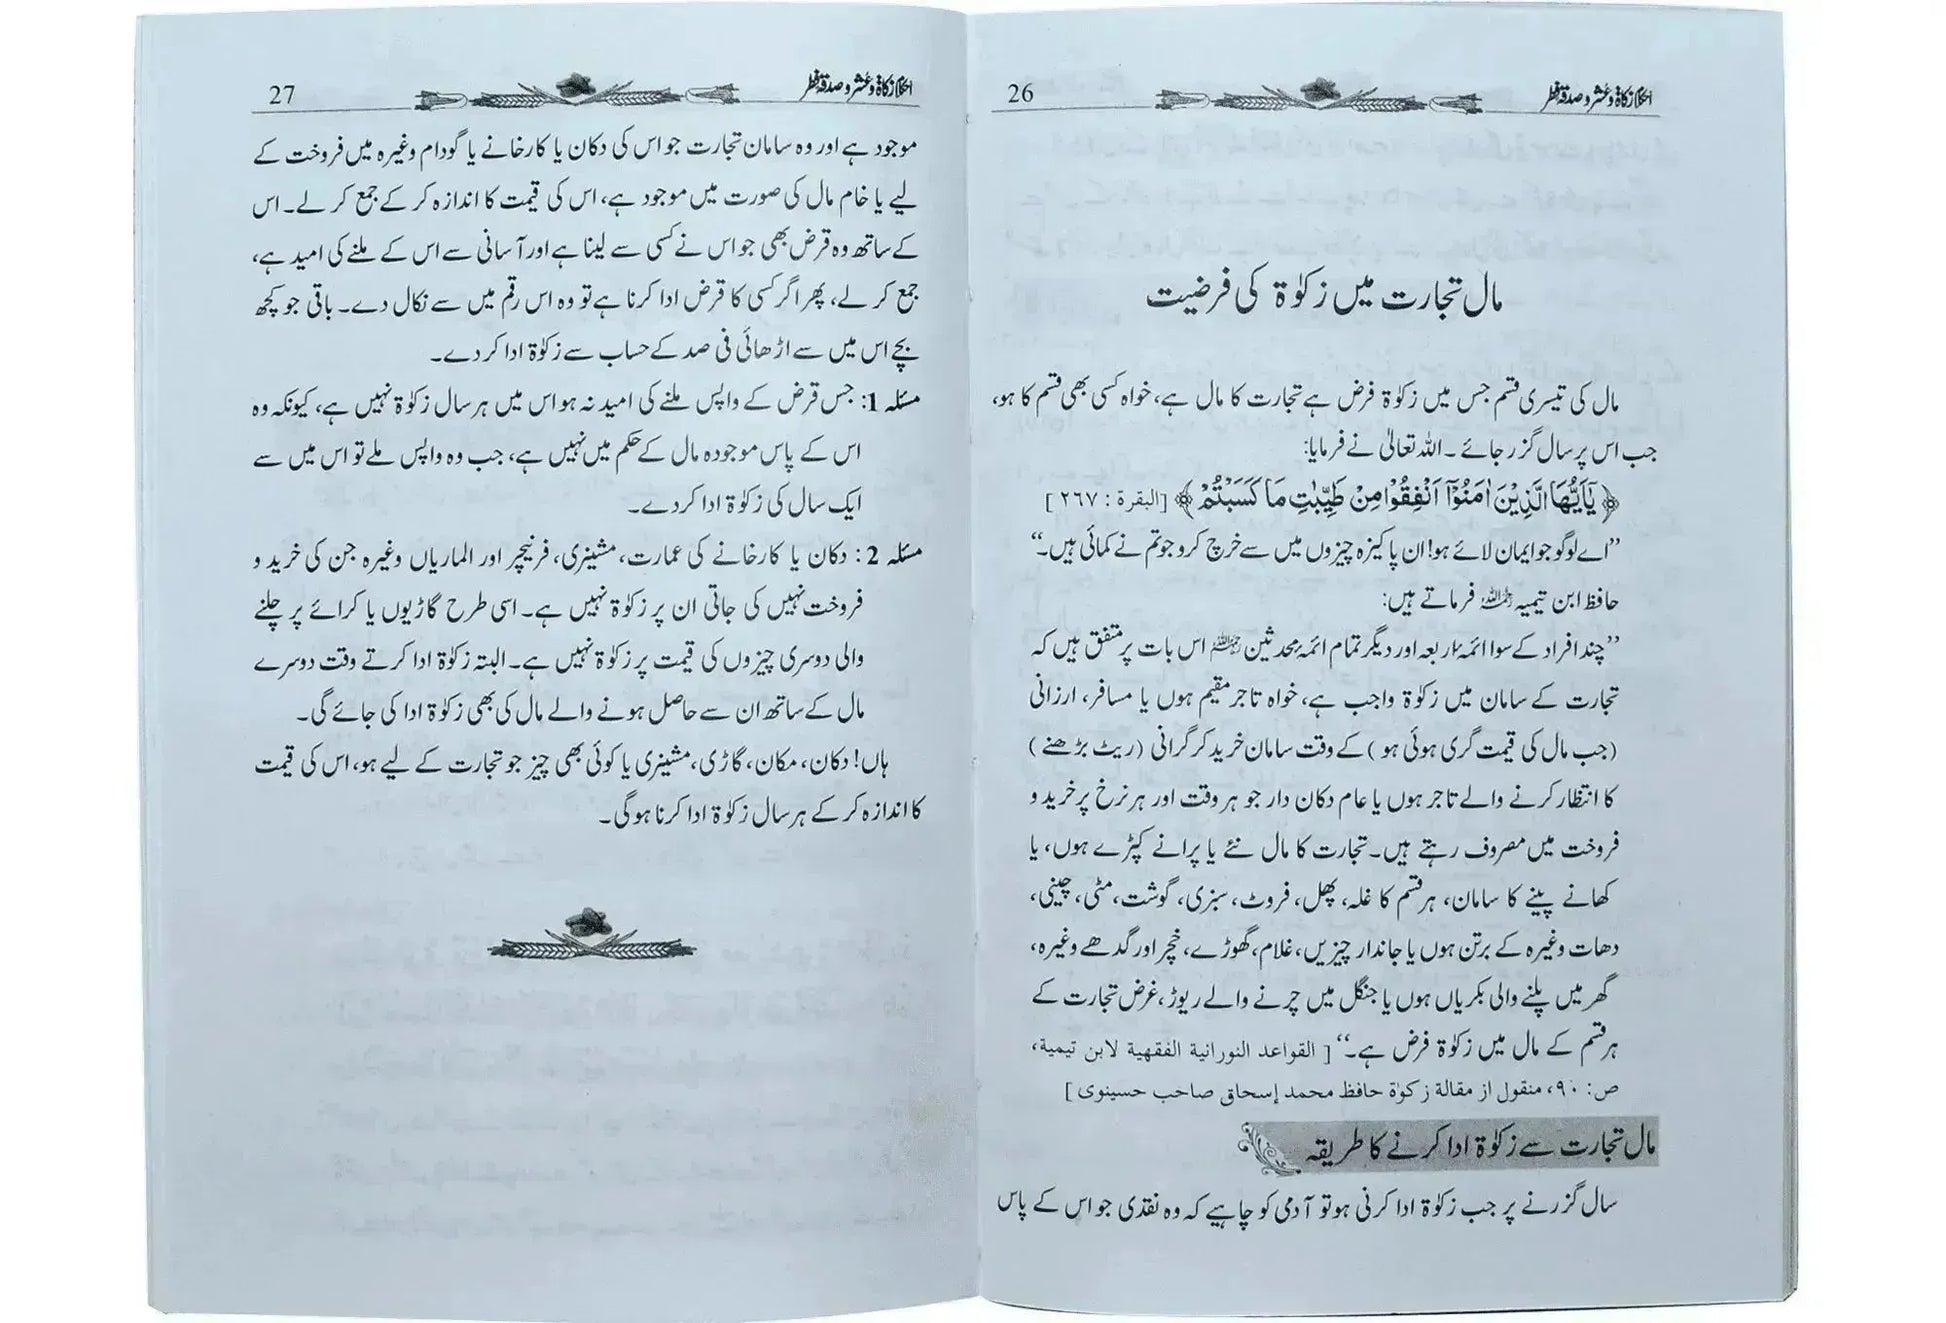 احکام زکاۃ و عشر و صدقۃ فطر
26
مال تجارت میں زکوٰۃ کی فرضیت
مال کی تیسری قسم جس میں زکوٰۃ فرض ہے تجارت کا مال ہے، خواہ کسی بھی قسم کا ہو،
جب اس پر سال گزر جائے ۔ اللہ تعالیٰ نے فرمایا:
﴿ یٰۤاَیُّهَا الَّذِیْنَ اٰمَنُوْۤا اَنْفِقُوْا مِنْ طَیِّبٰتِ مَا كَسَبْتُمْ ﴾ [البقرة : ٢٦٧ ]
’’اے لوگو جو ایمان لائے ہو! ان پاکیزہ چیزوں میں سے خرچ کرو جو تم نے کمائی ہیں۔‘‘
حافظ ابن تیمیہ رحمہ اللہ فرماتے ہیں:
’’چند افراد کے سوا ائمۂ اربعہ اور دیگر تمام ائمۂ محدثین رحمہم اللہ اس بات پر متفق ہیں کہ
تجارت کے سامان میں زکوٰۃ واجب ہے، خواہ تاجر مقیم ہوں یا مسافر، ارزانی
(جب مال کی قیمت گری ہوئی ہو ) کے وقت سامان خرید کر گرانی (ریٹ بڑھنے )
کا انتظار کرنے والے تاجر ہوں یا عام دکان دار جو ہر وقت اور ہر نرخ پر خرید و
فروخت میں مصروف رہتے ہیں۔ تجارت کا مال نئے یا پرانے کپڑے ہوں، یا
کھانے پینے کا سامان، ہر قسم کا غلہ، پھل، فروٹ، سبزی، گوشت، مٹی، چینی،
دھات وغیرہ کے برتن ہوں یا جاندار چیزیں، غلام، گھوڑے، خچر اور گدھے وغیرہ،
گھر میں پلنے والی بکریاں ہوں یا جنگل میں چرنے والے ریوڑ، غرض تجارت کے
ہر قسم کے مال میں زکوٰۃ فرض ہے۔‘‘ [ القواعد النورانية الفقهية لابن تيمية،
ص: ٩٠، منقول از مقالة زكوٰة حافظ محمد إسحاق صاحب حسينوى ]
مال تجارت سے زکوٰۃ ادا کرنے کا طریقہ
سال گزرنے پر جب زکوٰۃ ادا کرنی ہو تو آدمی کو چاہیے کہ وہ نقدی جو اس کے پاس
احکام زکاۃ و عشر و صدقۃ فطر
27
موجود ہے اور وہ سامان تجارت جو اس کی دکان یا کارخانے یا گودام وغیرہ میں فروخت کے
لیے یا خام مال کی صورت میں موجود ہے، اس کی قیمت کا اندازہ کر کے جمع کر لے۔ اس
کے ساتھ وہ قرض بھی جو اس نے کسی سے لینا ہے اور آسانی سے اس کے ملنے کی امید ہے،
جمع کر لے، پھر اگر کسی کا قرض ادا کرنا ہے تو وہ اس رقم میں سے نکال دے۔ باقی جو کچھ
بچے اس میں سے اڑھائی فی صد کے حساب سے زکوٰۃ ادا کر دے۔
مسئلہ 1: جس قرض کے واپس ملنے کی امید نہ ہو اس میں ہر سال زکوٰۃ نہیں ہے، کیونکہ وہ
اس کے پاس موجودہ مال کے حکم میں نہیں ہے، جب وہ واپس ملے تو اس میں سے
ایک سال کی زکوٰۃ ادا کر دے۔
مسئلہ 2 : دکان یا کارخانے کی عمارت، مشینری، فرنیچر اور الماریاں وغیرہ جن کی خرید و
فروخت نہیں کی جاتی ان پر زکوٰۃ نہیں ہے۔ اسی طرح گاڑیوں یا کرائے پر چلنے
والی دوسری چیزوں کی قیمت پر زکوٰۃ نہیں ہے۔ البتہ زکوٰۃ ادا کرتے وقت دوسرے
مال کے ساتھ ان سے حاصل ہونے والے مال کی بھی زکوٰۃ ادا کی جائے گی۔
ہاں! دکان، مکان، گاڑی، مشینری یا کوئی بھی چیز جو تجارت کے لیے ہو، اس کی قیمت
کا اندازہ کر کے ہر سال زکوٰۃ ادا کرنا ہوگی۔